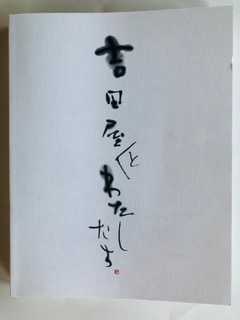 吉田屋と
わたし
たち